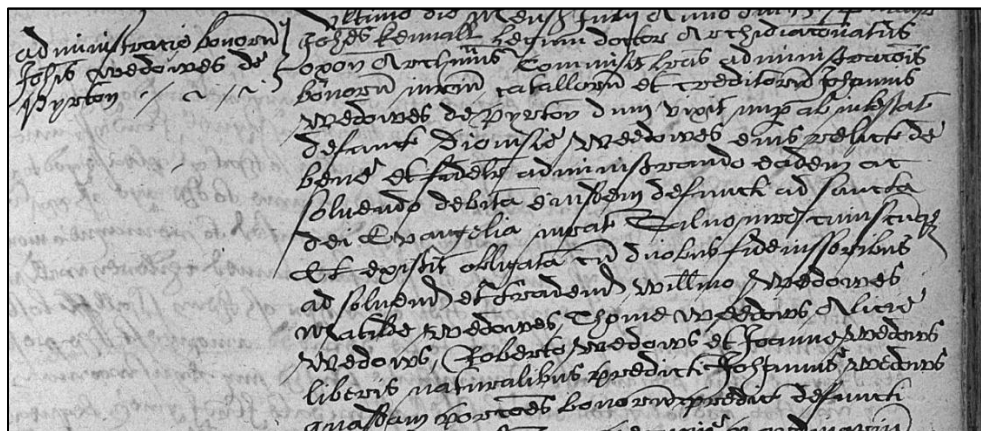 administratio bonorum
Joh̃is Wedowes de
Pyrton
Ultimo die mens̃ Anno
Joh̃es Kennall legum doctor Archidiaconatus
Oxon commisit l̃ras administracõis
bonorũ catallorũ et creditorũ Johannis
Wedowes de Pyrton dum vixit nup ab intestat
defunct Dionisie Wedowes eius relicte de
bene et fideliter administrando eadem ac
solvendo debita eiusdem defuncti ad sancta
dei Evangelia iurat Salvo iure cuiuscũq
Et existit obligata cũ duobus fideiussoribus
ad solvend et tradend Will̃mo Wedowes
Matilde Wedowes, Thome Wedows, Alicie
Wedows, Roberto Wedows et Joanne Wedows
liberis naturalibus predicti Johannis Wedows
quasdam porcões bonorũ predict defuncti